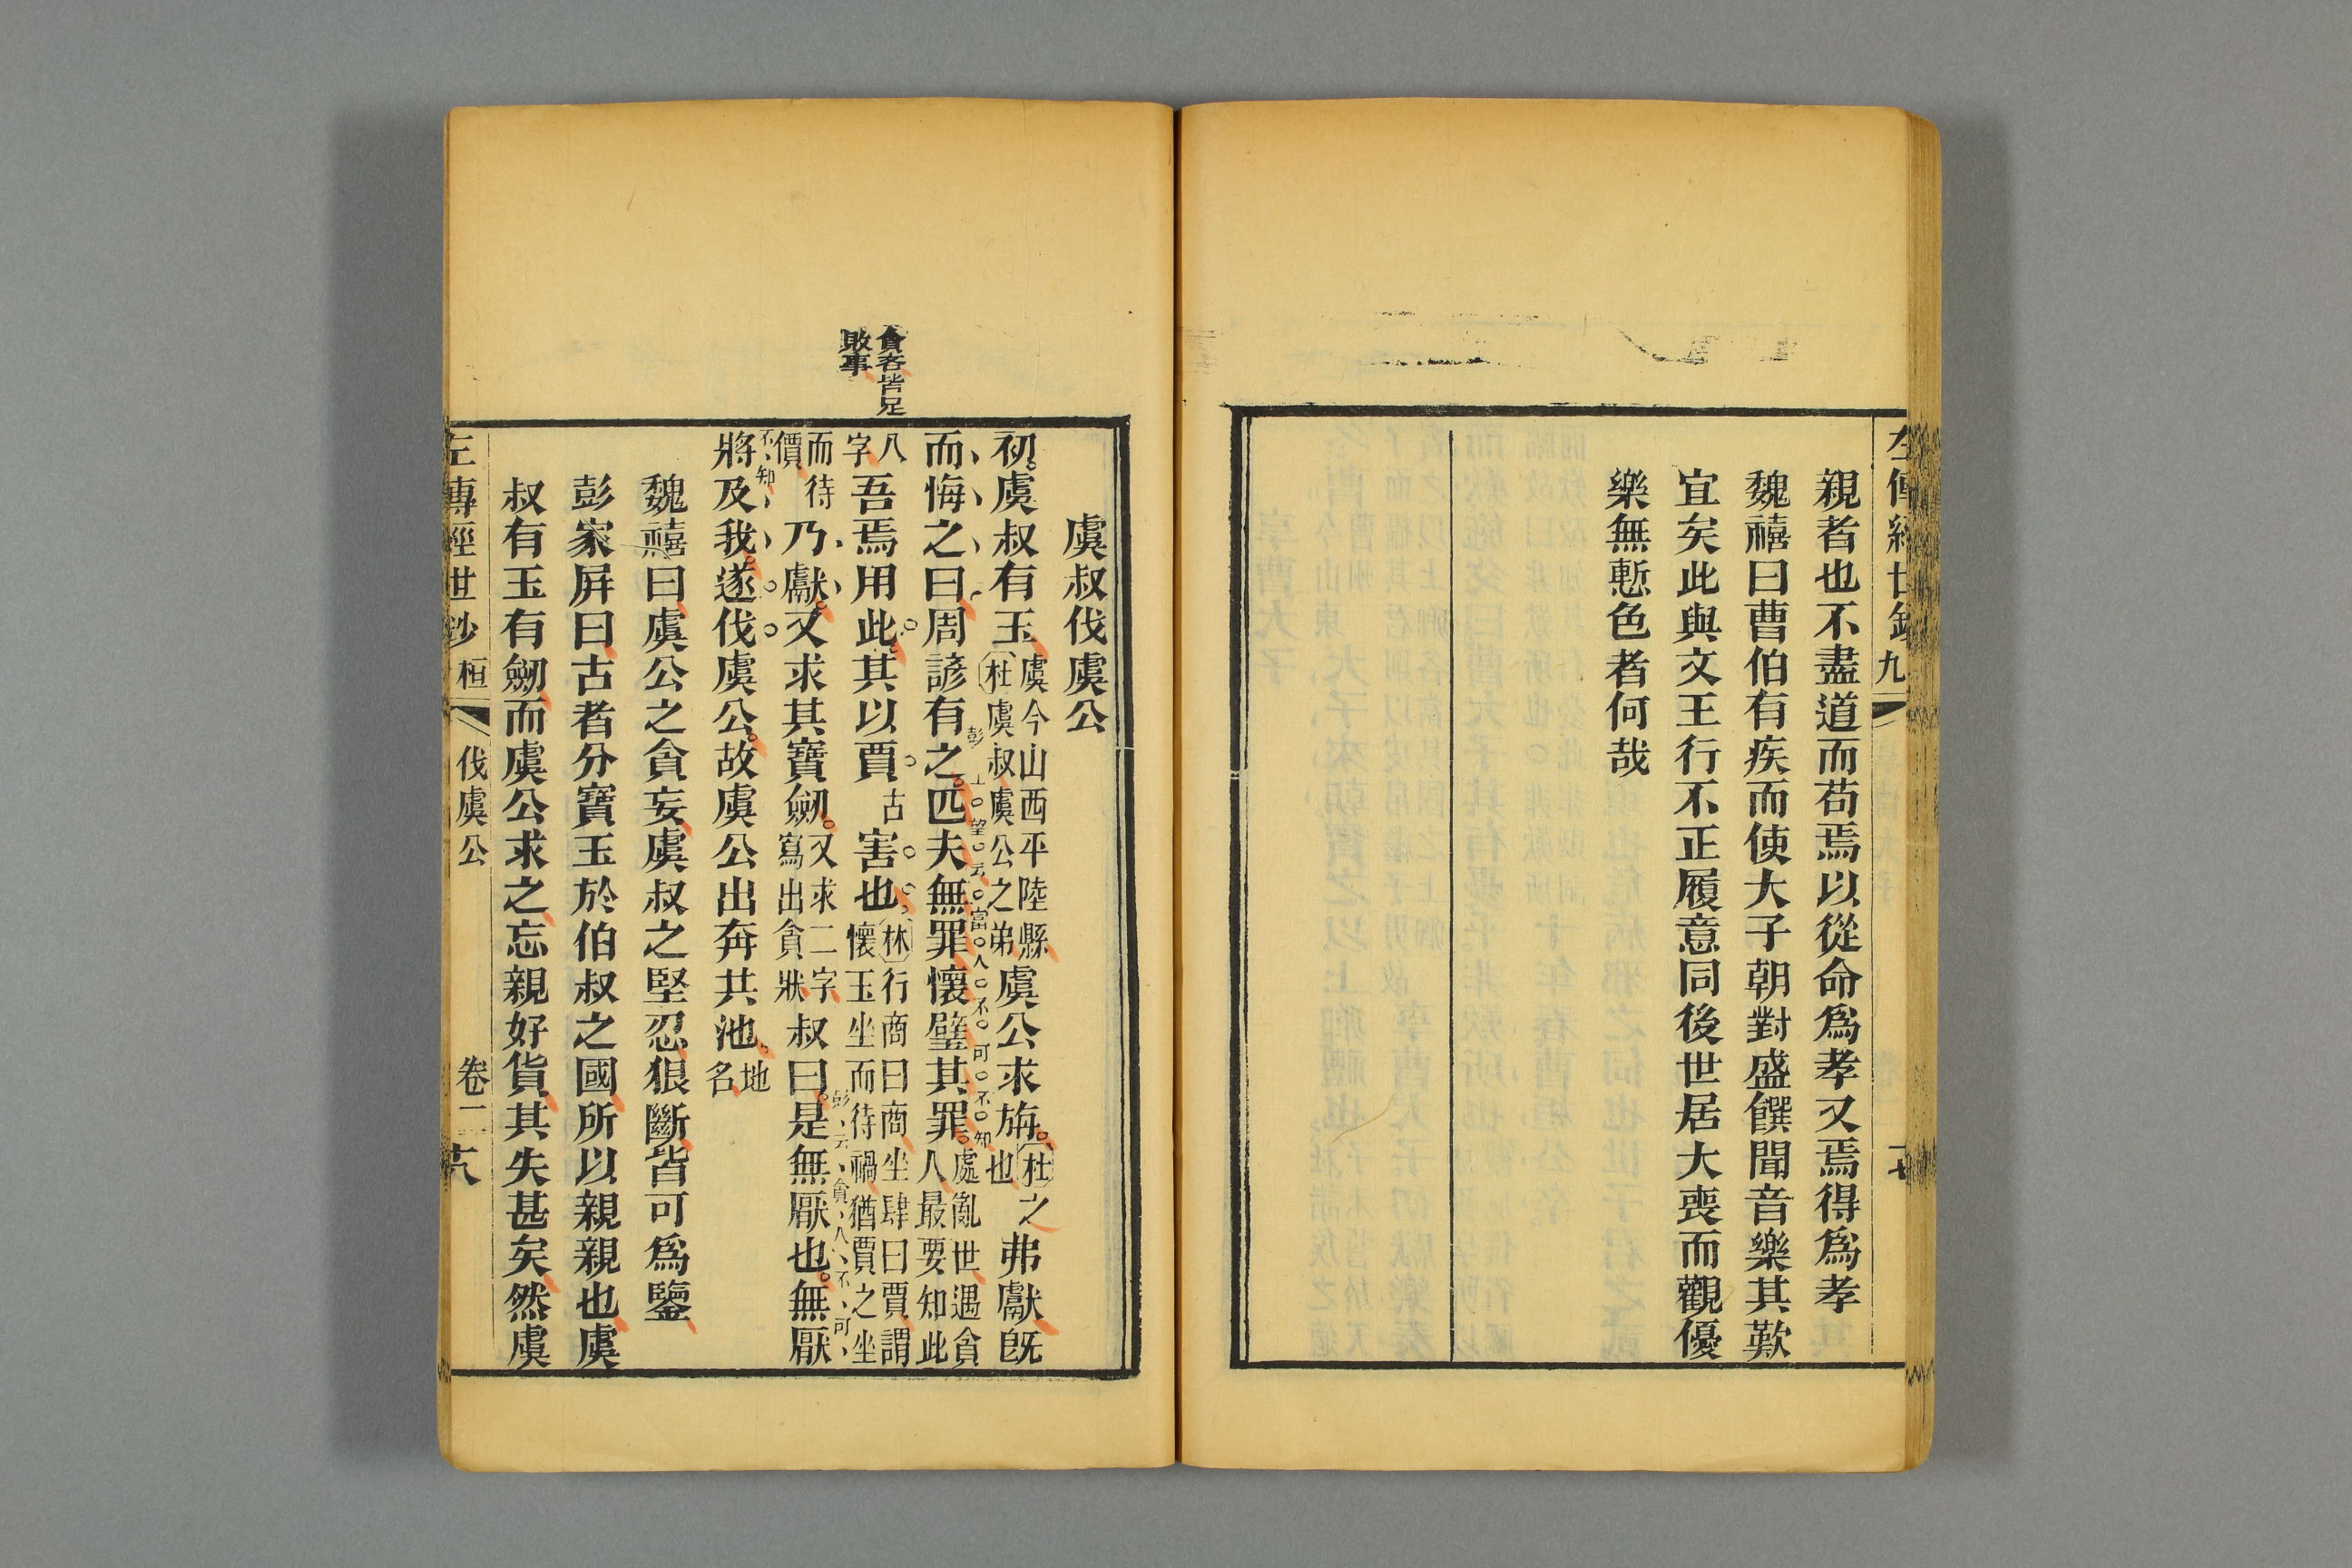 親者也不盡道而苟焉以從命爲孝又焉得爲孝
魏禧曰曹伯有疾而使大子朝對盛饌聞音樂其歎
宜矣此與文王行不正履意同後世居大喪而觀優
樂無慙色者何哉
貪吝皆足
敗事
虞叔伐虞公
初虞叔有玉虞今山西平陸縣杜虞叔虞公之弟虞公求旃杜之也弗獻旣
而悔之曰周諺有之匹夫無罪懷璧其罪處亂世遇貪人最要知此
八字吾焉用此其以賈古害也林行商曰商坐肆曰賈謂懷玉坐而待禍猶賈之坐
而待價乃獻又求其寶劒又求二字寫出貪狀叔曰是無厭也無厭
將及我遂伐虞公故虞公出奔共池地名
彭士望云富人不可不知
彭云貪人不可不知
魏禧曰虞公之貪妄虞叔之堅忍狠斷皆可爲鑒
彭家屏曰古者分寶玉於伯叔之國所以親親也虞
叔有玉有劒而虞公求之忘親好貨其失甚矣然虞
左傳經世鈔 桓 伐虞公 卷二 十八